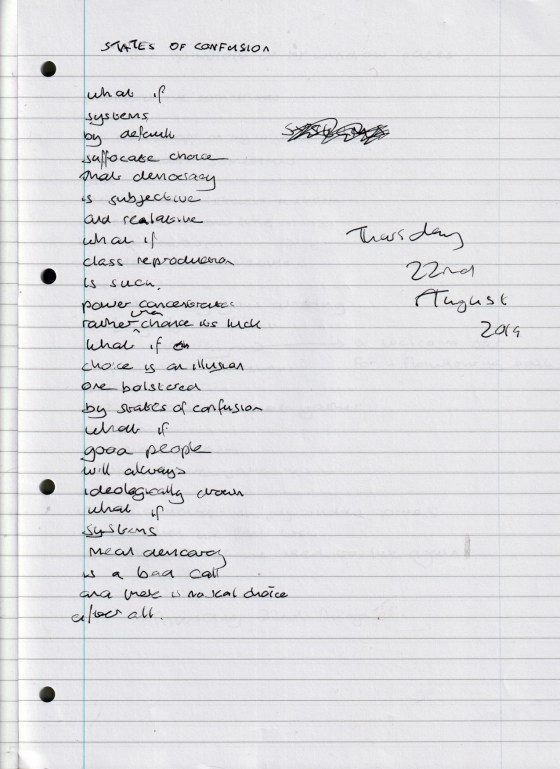 STATES OF CONFUSION
what if
systems
by default
suffocate choice
that democracy
is subjective
and realative
what if
class reproduction
is such,
power concentrates
rather than chance its luck
what if
choice is an illusion
one bolstered
by states of confusion
what if
good people
will always
ideologically drown
what if
systems
mean democracy
is a bad call
and there is no real choice
after all.
Thursday
22nd
August
2019